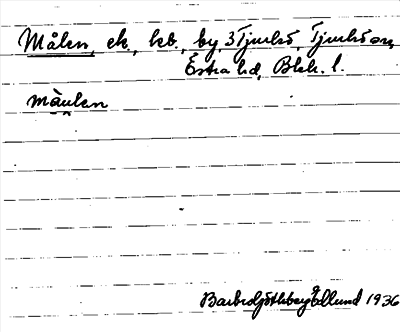 Målen, ek., kb., by 3 Tjurkö, Tjurkö sn,
Östra hd, Blek. l.
måulen
Barbro Edlund 1936